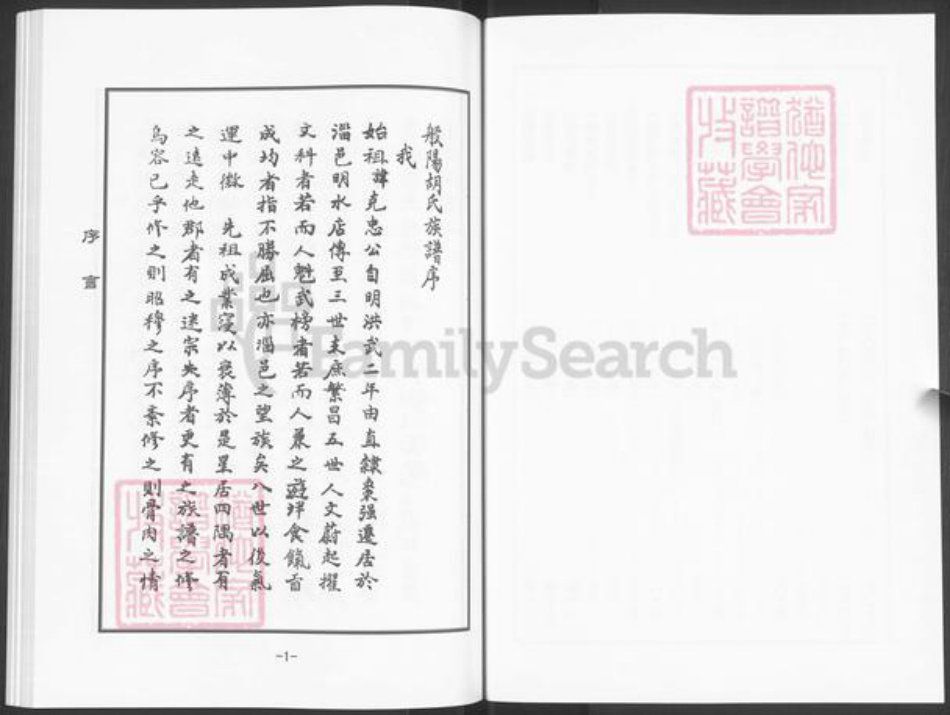 般陽胡氏族譜序
我
始祖諱克忠公自明洪武二年由直隸棗强遷居於
淄邑明水店傳至三世支庶繁昌五世人文蔚起擢
文科者若而人魁武榜者若而人兼之遊泮食餼貢
成均者指不勝屈也亦淄邑之望族矣八世以後氣
運中微 先祖成業寖以衰薄於是星居四隅者有
之遠走他郡者有之迷宗失序者更有之族譜之修
烏容已乎修之則昭穆之序不紊修之則骨肉之情
序言
-1-
FamilySearch
猶他家
譜學會
收藏
猶他家
譜學會
收藏